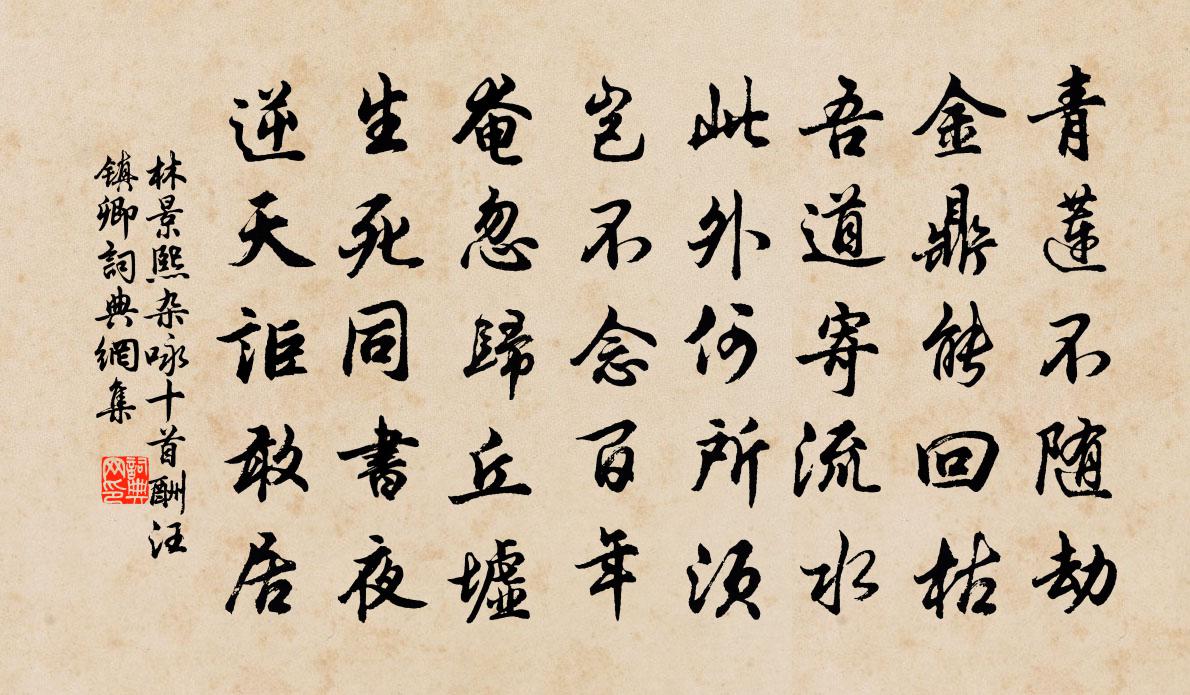 青蓮不随劫
金鼎能回枯
吾道寄流水
此外何所須
岂不念百年
奄忽歸丘墟
生死同書夜
逆天詎敢居
林景熙杂咏十首酬汪
鎮卿詞典網集
詞典
网印